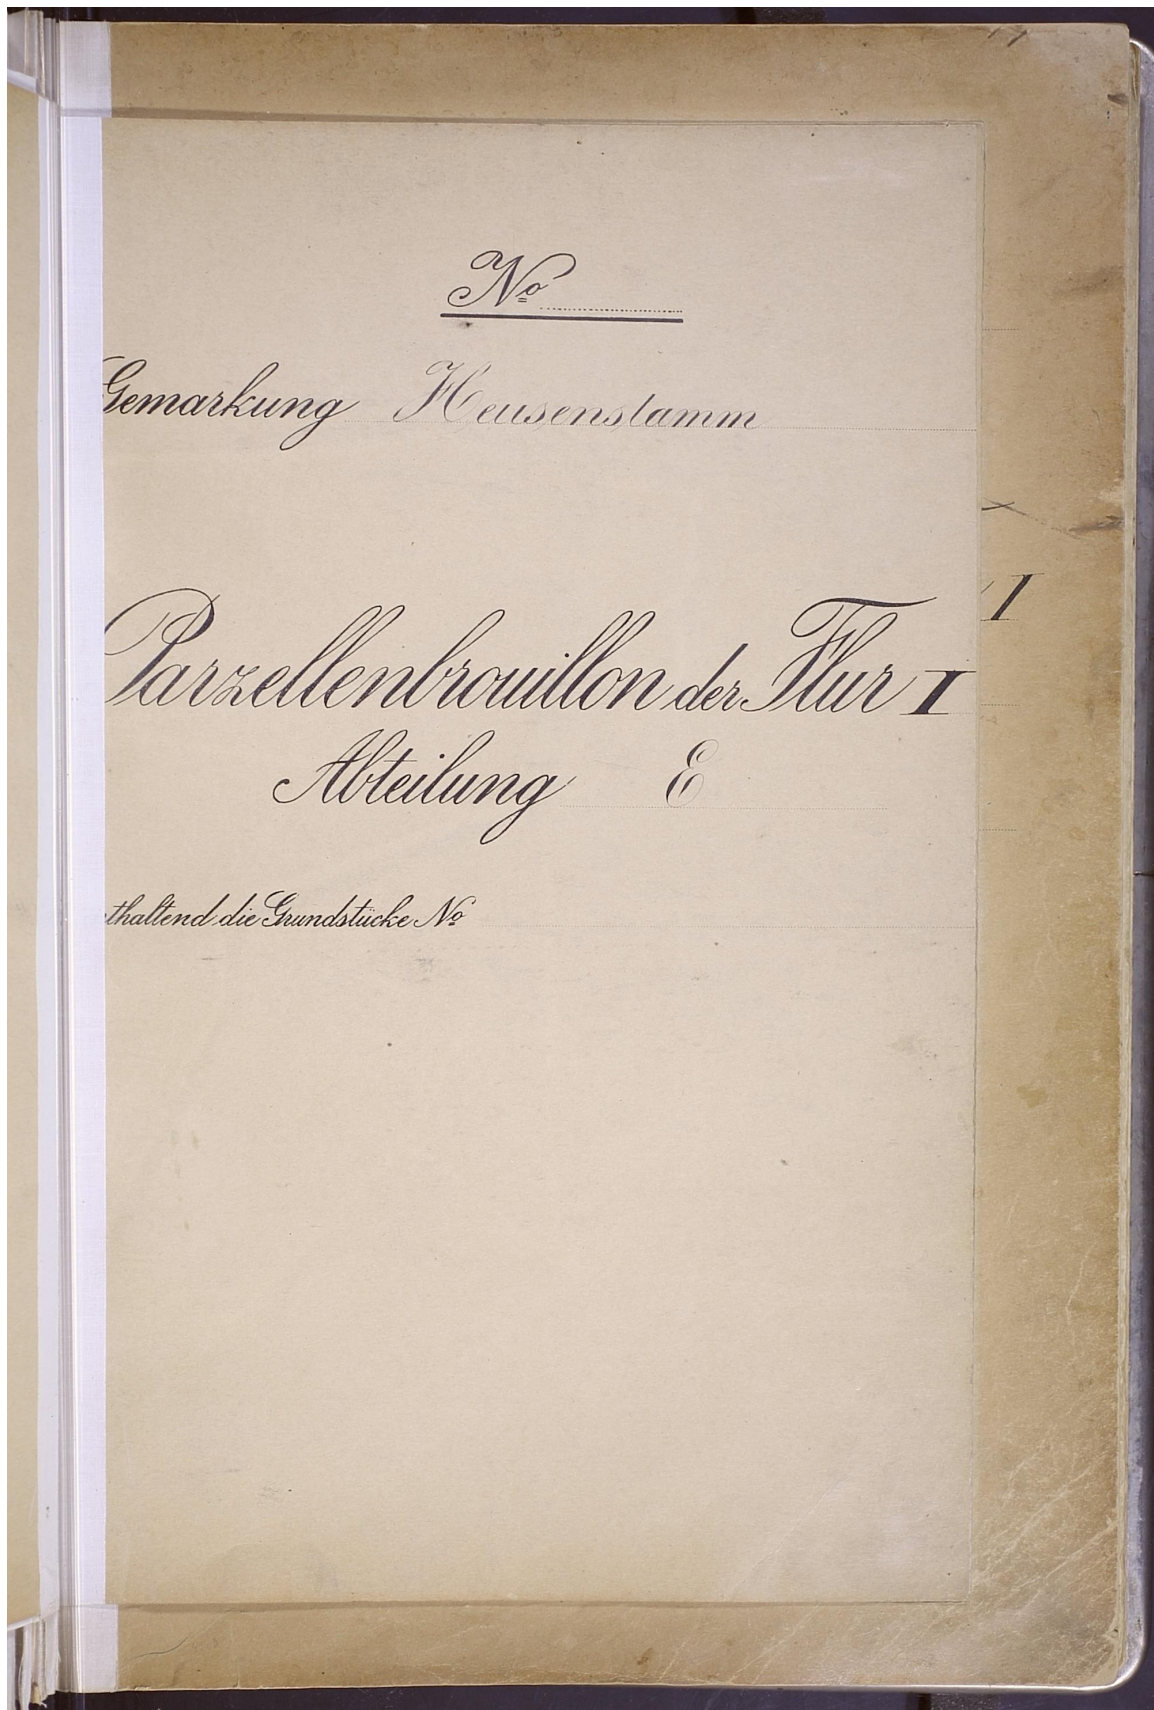 No
Gemarkung Heusenstamm
Parzellenbrouillon der Flur I
Abteilung E
thaltend die Grundstücke No
I